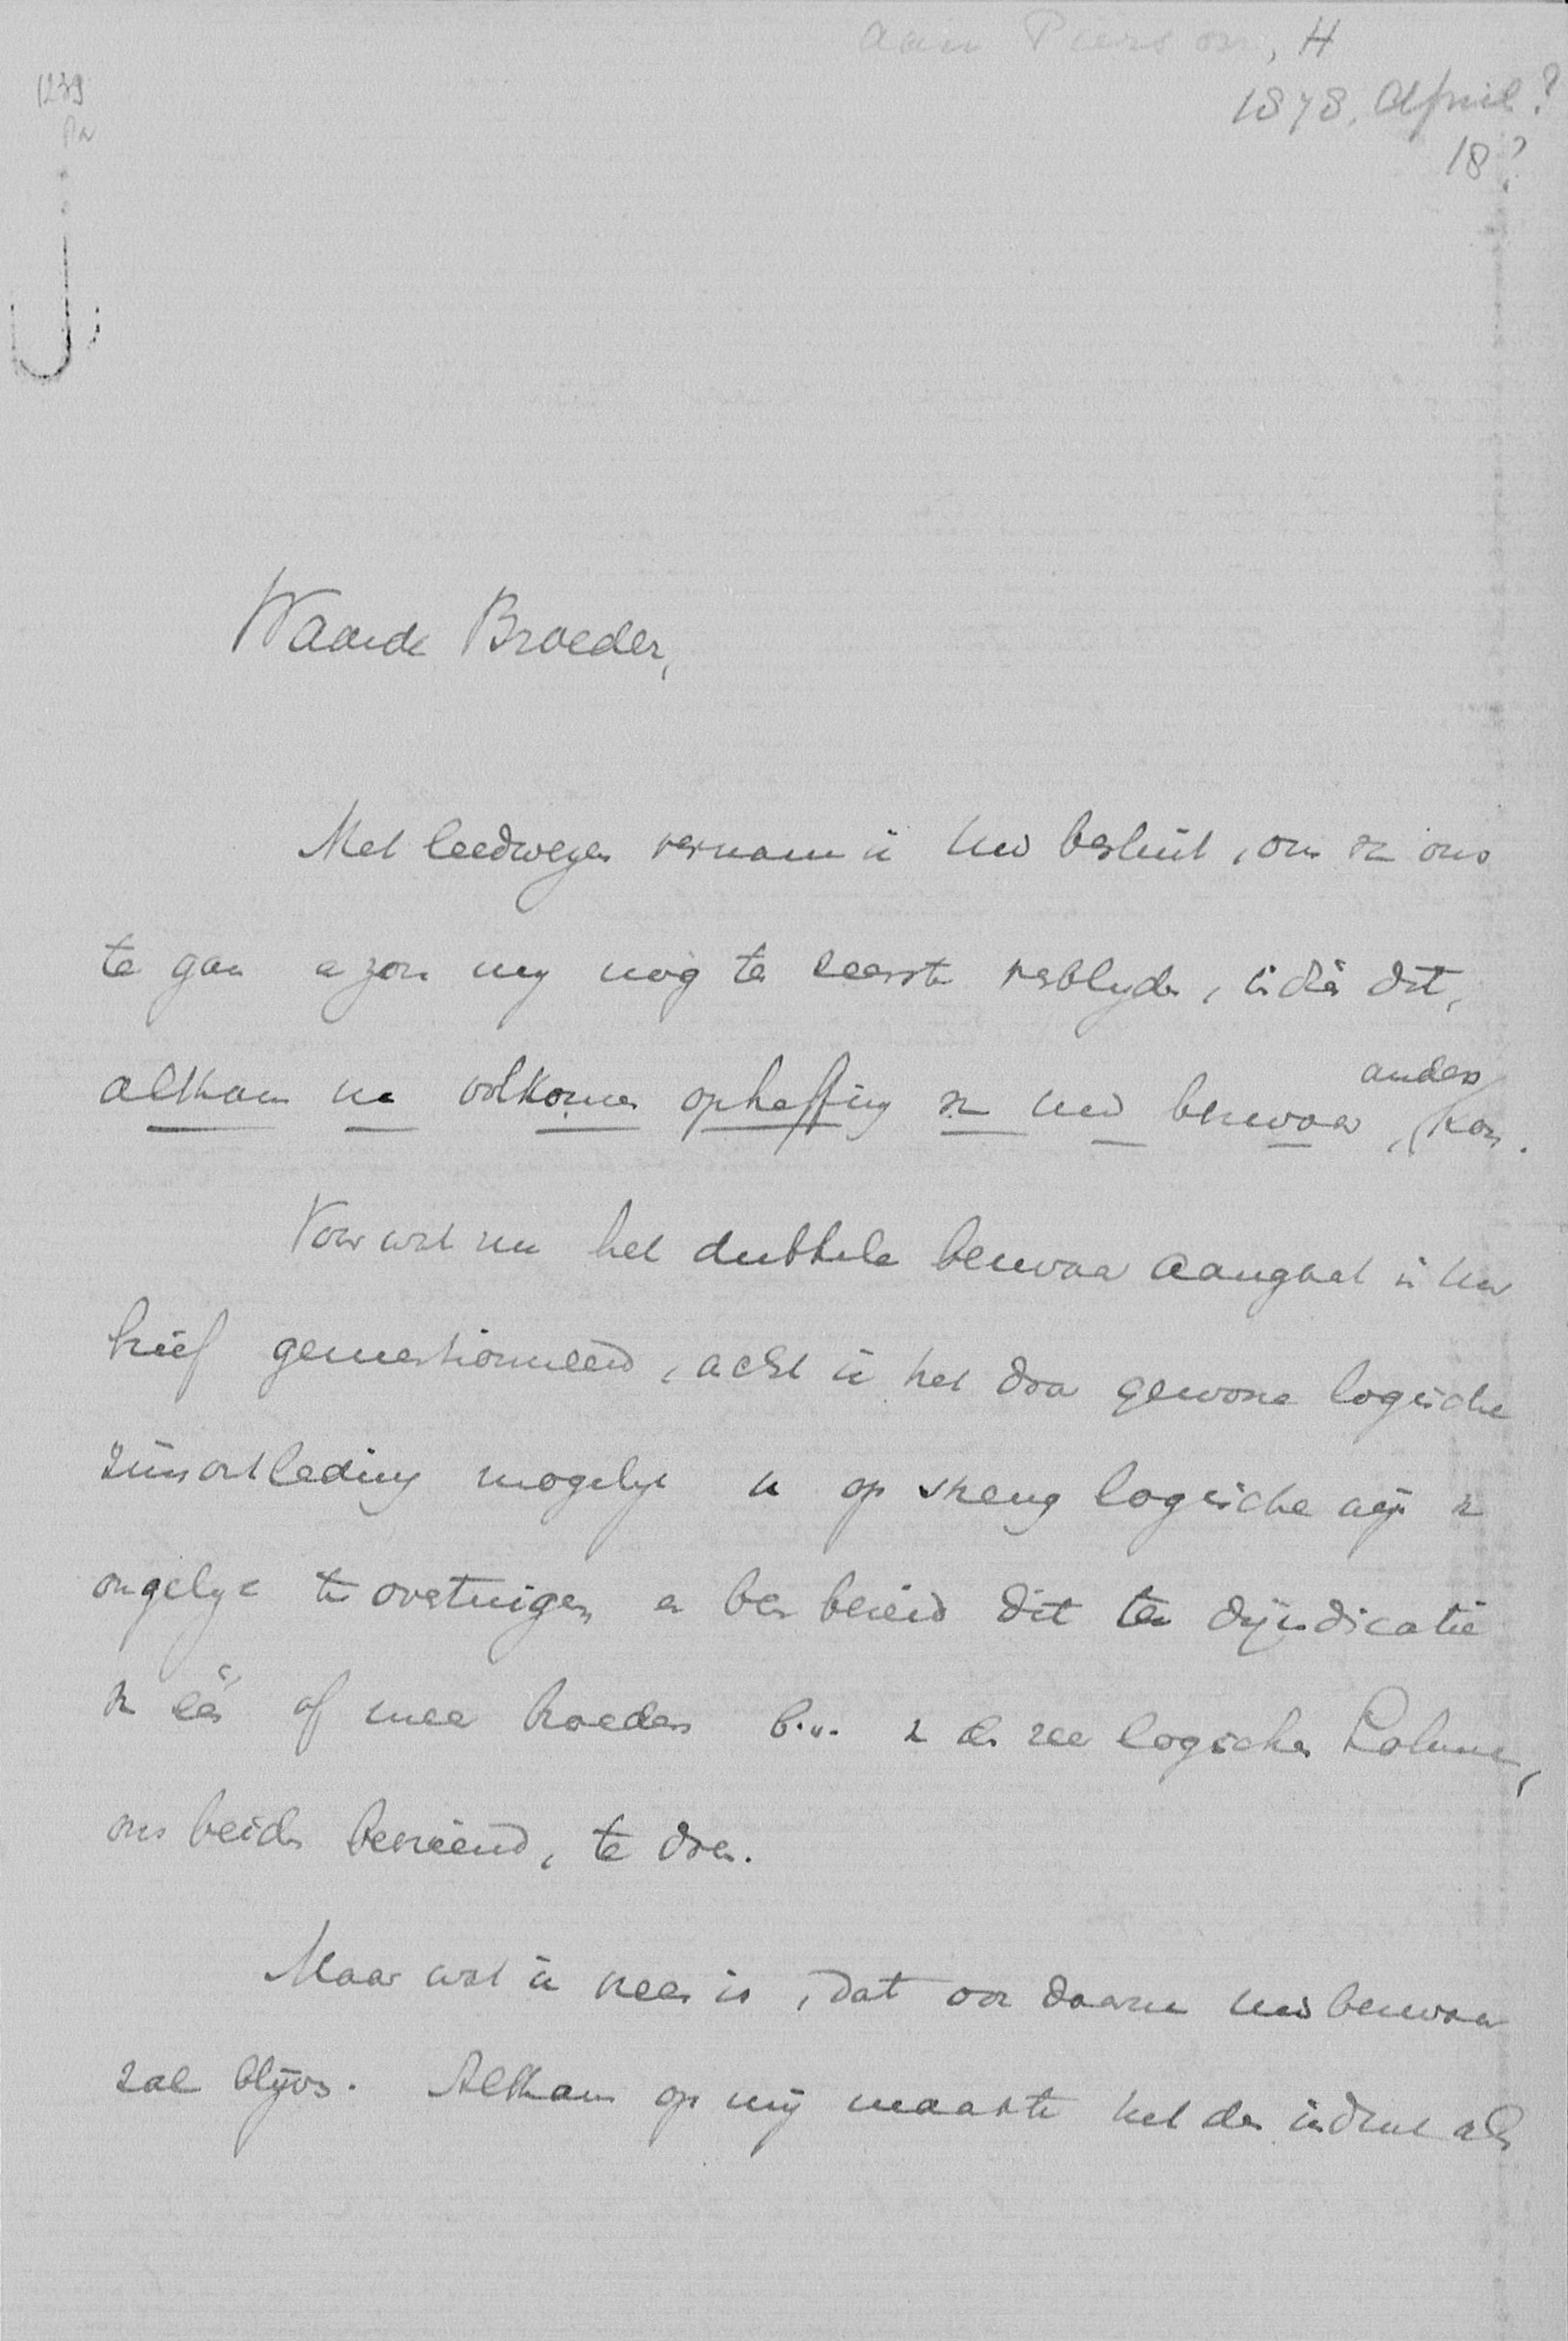 aan Pierson, H
1878, April?
18?
1239
Waarde Broeder,
Met leedwezen vernam ik Uw besluit, om van ons
te gaan en zou my nog ten zeerste verblyden, indien dit,
anders
althans na volkomen opheffing van Uw bezwaar, kon.
Voor wat nu het dubbele bezwaar aangaat in Uw
brief gementionneerd, acht ik het door gewone logische
zinsontleding mogelyk u op streng logische wijs van
ongelyk te overtuigen en ben bereid dit ten dijudicatie
van één of meer broeders b.v. van den zeer logischen
ons beiden bevriend, te doen.
Maar wat ik vrees is, dat ook daarna Uw bezwaar
zal blijven. Althans op mij maakte het den indruk als